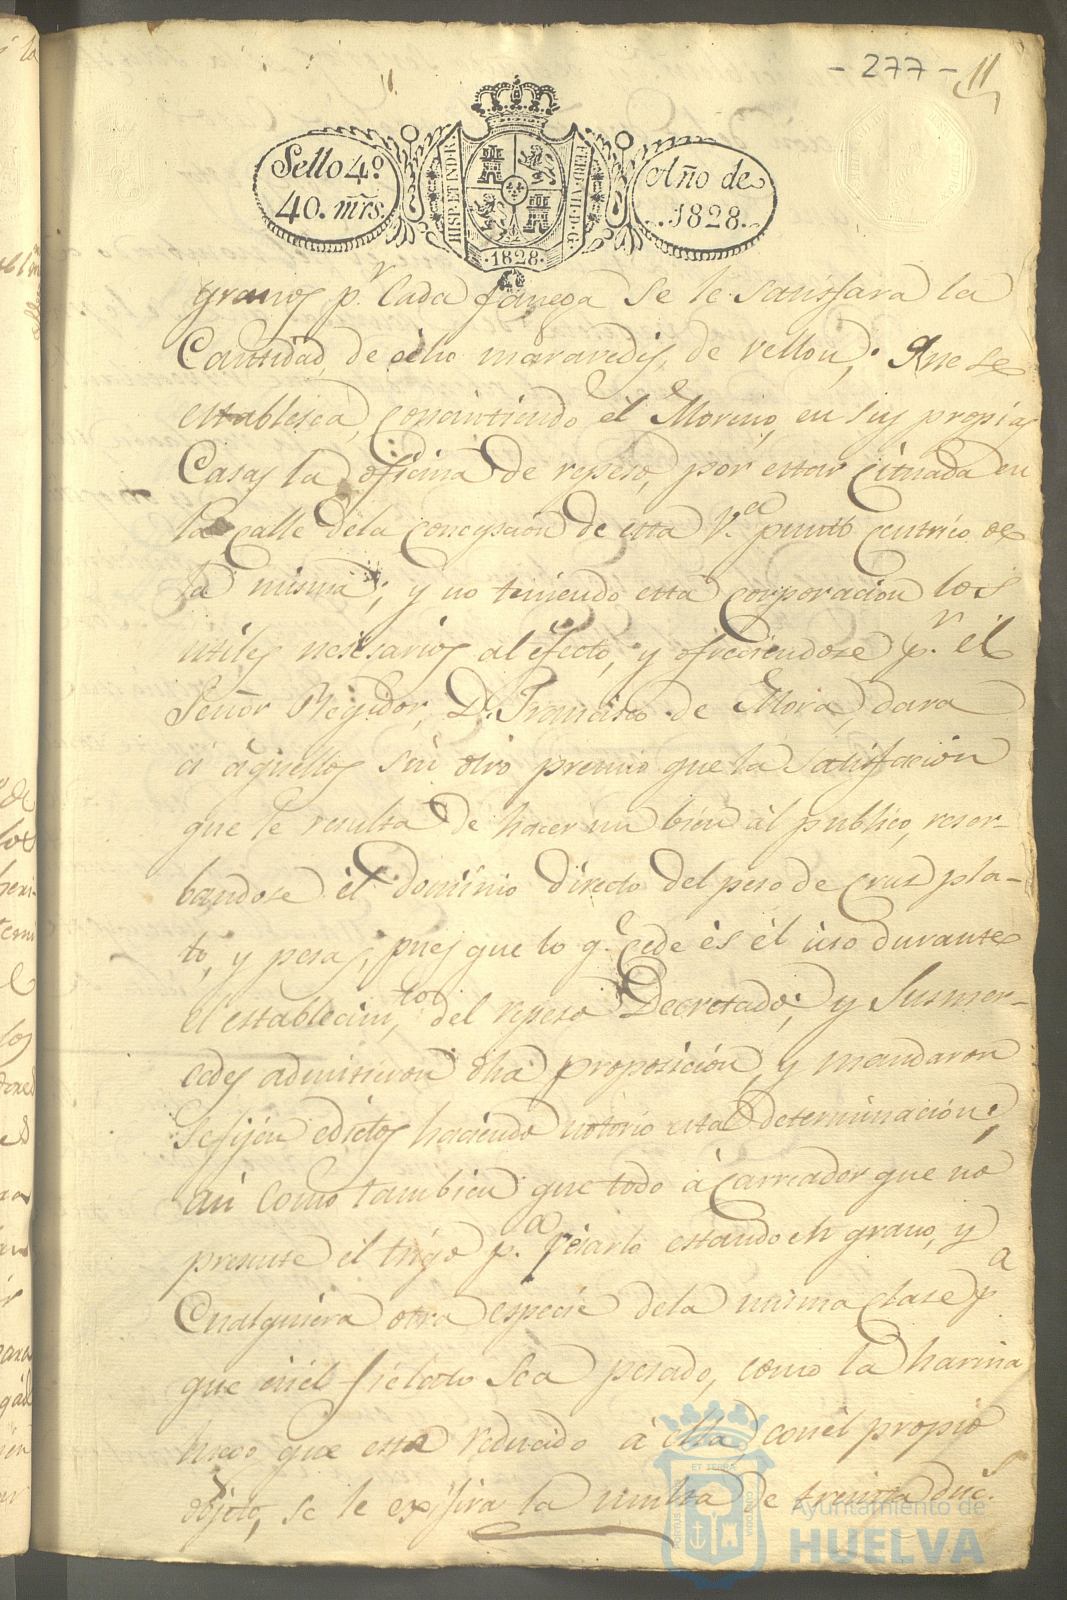 - 277 - 11
Sello 4º
40. mrs.
HISP. ET IND. R.
FERD. VII. D. G.
·1828·
Año de
1828.
granos pʳ Cada fanega se le satisfara la
Cantidad de ocho maravedis, de vellon; Que se
establesca, consintiendo él Moreno, en sus propias
Casas la oficina de repeso, por estar cituada en
la calle dela Concepcion de esta Vᵃ punto centrico de
la misma; y no teniendo esta corporacion los
utiles nesesarios al éfecto, y ofreciendose pʳ él
Señor Regidor, D. Francisco de Mora, dara
á áquellos sin otro premio que la satisfacion
que le resulta de hacer un bien ál publico, reser-
bandose él dominio directo del peso de cruz pla-
to, y pesas, pues que lo q.ᵉ cede és él uso durante
el establecim.ᵗᵒ del repeso Decretado; y Susmer-
cedes admitieron dha proposicion, y mandaron
se fijen edictos haciendo notorio esta determinacion,
asi como tambien que todo ácarreador que no
presente él trigo p.ᵃ pesarlo estando en grano, y
Cualquiera otra especie dela misma clase pᵃ
que enél fiélato sea pesado, como la harina
luego que este reducido á ella, conél propio
objeto, se le exijira la multa de treinta duc.ˢ
ET TERRÆ
PORTUS
CUSTODIA
Ayuntamiento de
HUELVA